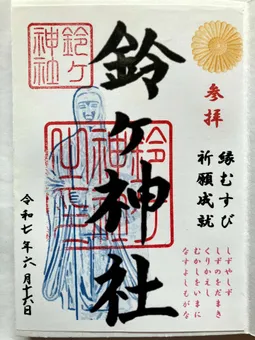 参拝
縁むすび
祈願成就
しずやしず
しずのをだまき
くりかえし
むかしをいまに
なすよしもがな
鈴ヶ神社
鈴ヶ
神社
令和七年六月十六日